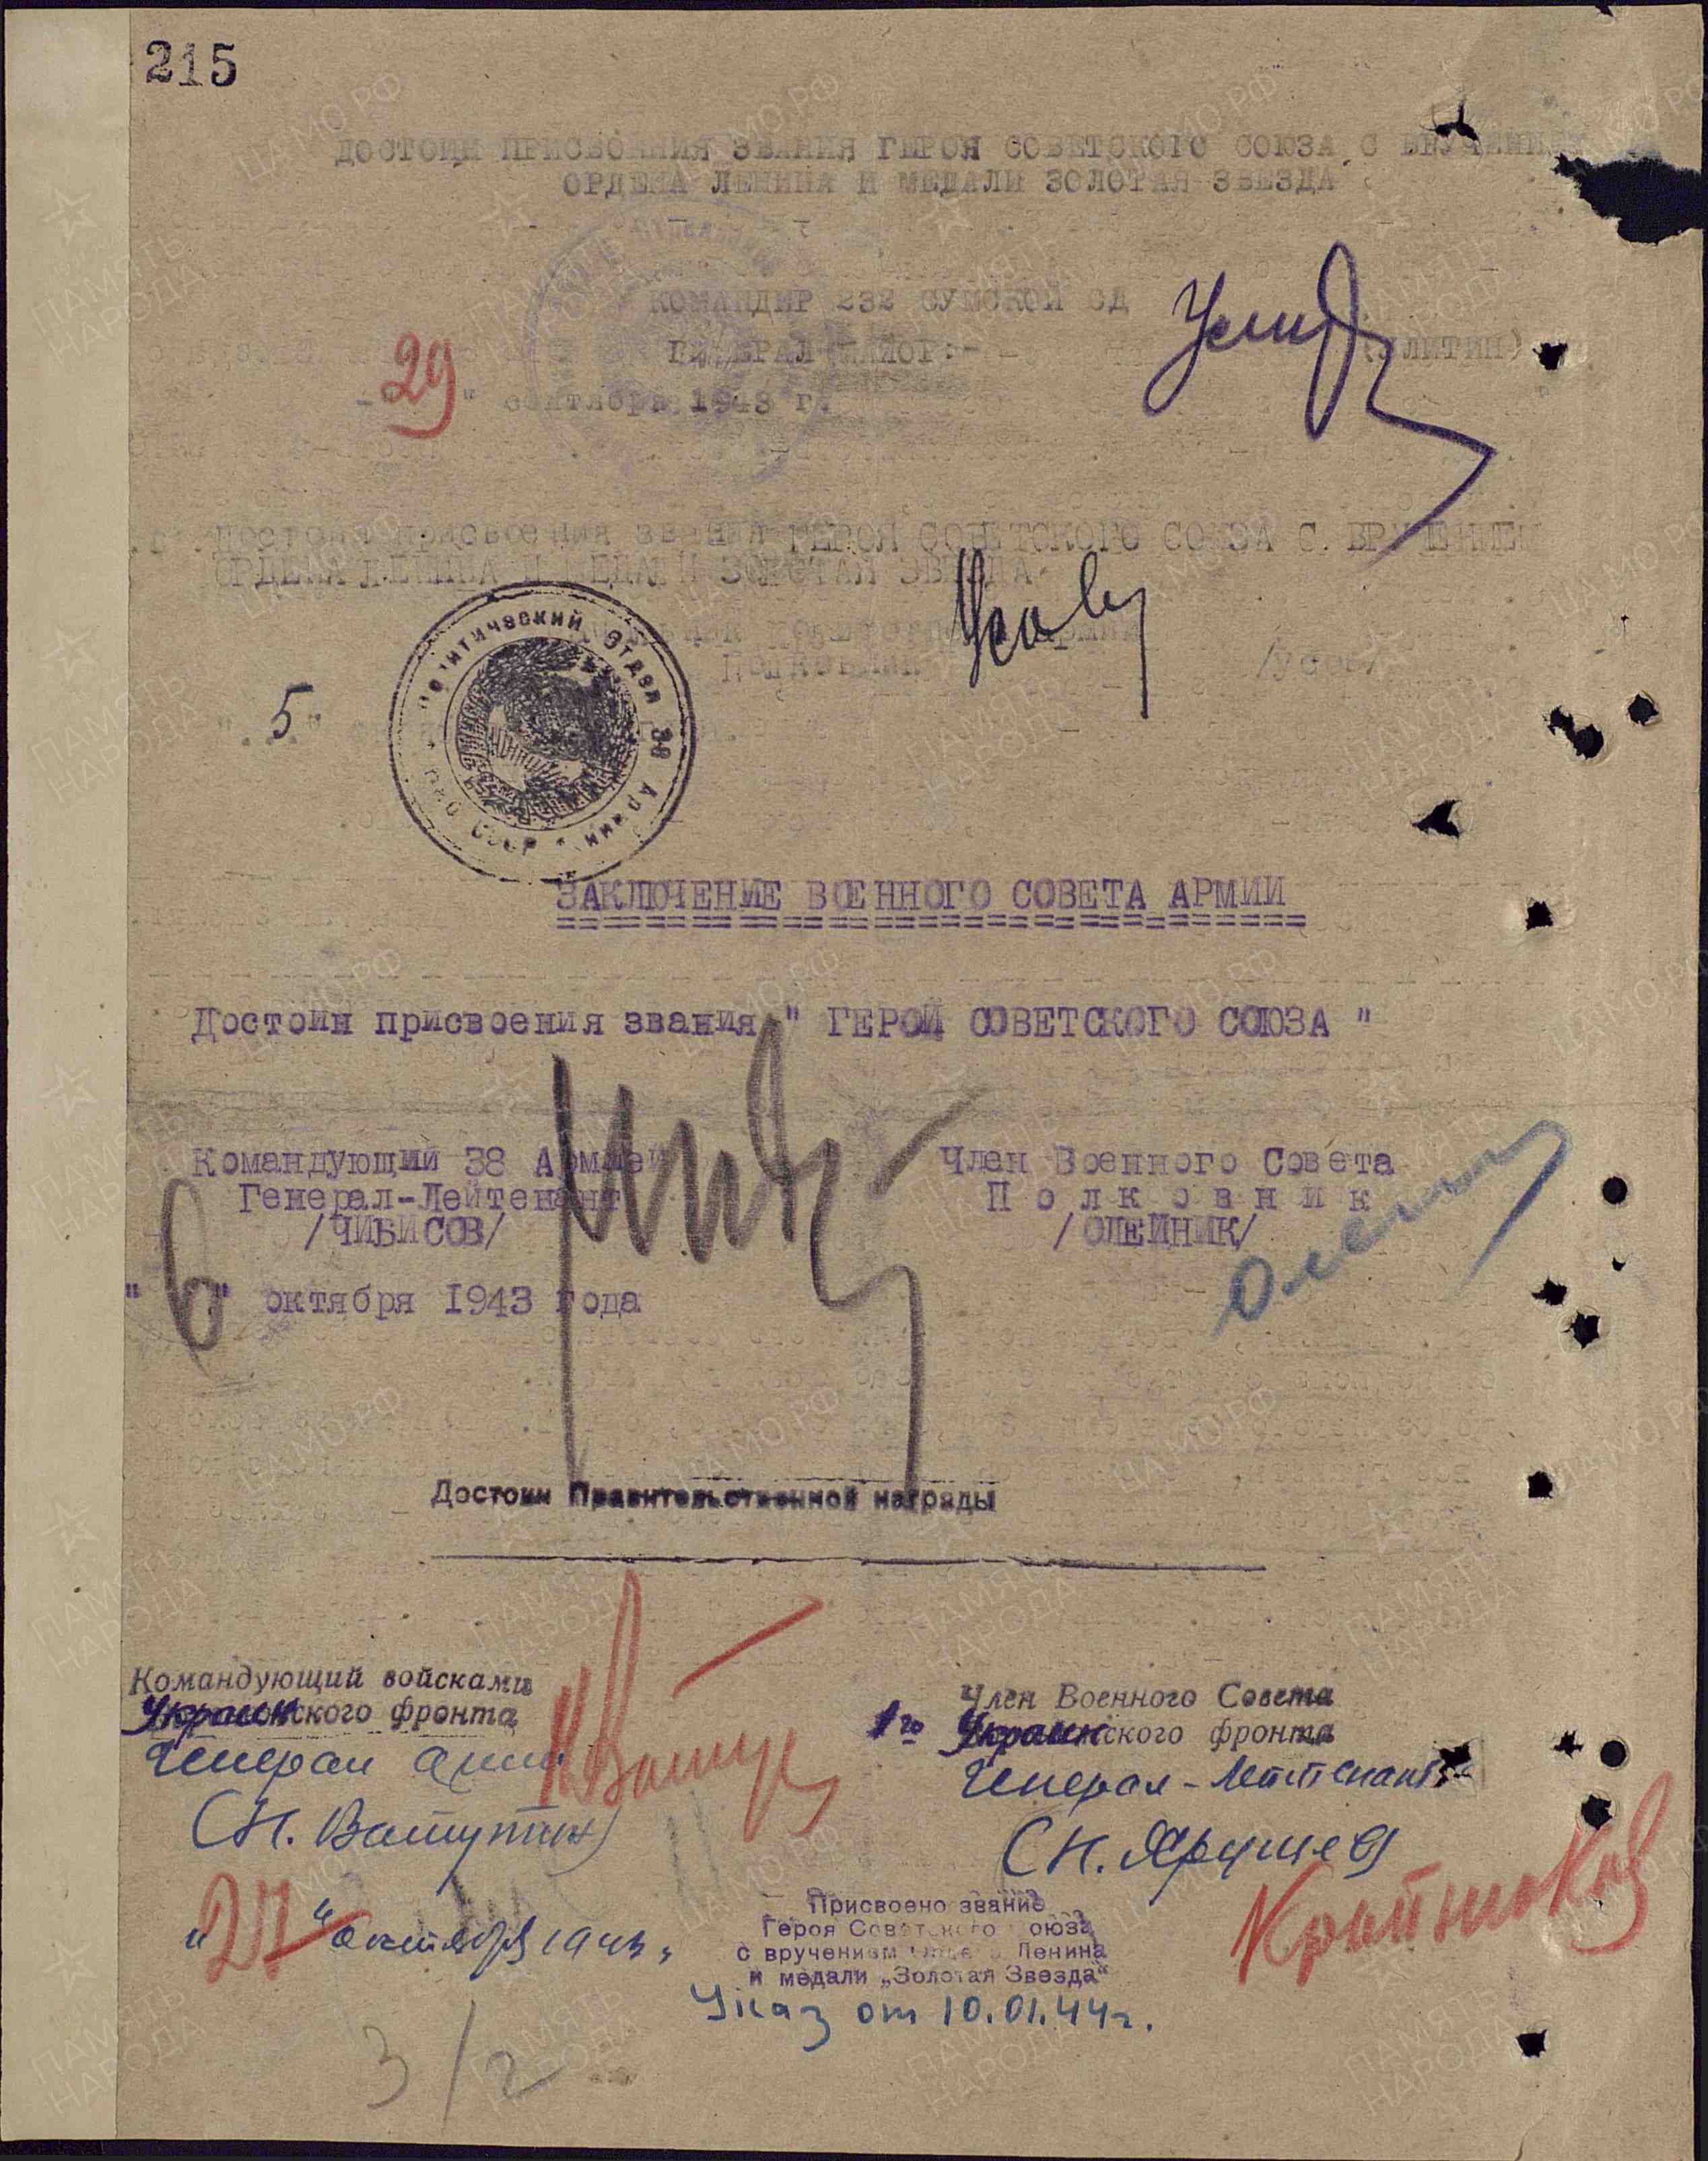 215
ДОСТОИН ПРИСВОЕНИЯ ЗВАНИЯ ГЕРОЯ СОВЕТСКОГО СОЮЗА С ВРУЧЕНИЕМ
ОРДЕНА ЛЕНИНА И МЕДАЛИ ЗОЛОТАЯ ЗВЕЗДА
КОМАНДИР 232 СУМСКОЙ СД
ГЕНЕРАЛ МАЙОР:-
(УЛИТИН)
"29" сентября 1943 г.
Достоин присвоения звания ГЕРОЯ СОВЕТСКОГО СОЮЗА С ВРУЧЕНИЕМ
ОРДЕНА ЛЕНИНА И МЕДАЛИ ЗОЛОТАЯ ЗВЕЗДА
Полковник
/Усов/
"5"
Политический Отдел 38 Армии * НКО СССР *
ЗАКЛЮЧЕНИЕ ВОЕННОГО СОВЕТА АРМИИ
Достоин присвоения звания " ГЕРОЙ СОВЕТСКОГО СОЮЗА "
Командующий 38 Армией
Генерал-Лейтенант
/ЧИБИСОВ/
Член Военного Совета
Полковник
/ОЛЕЙНИК/
"6" октября 1943 года
Достоин Правительственной награды
Командующий войсками
Украинского фронта
Генерал арми
(Н. Ватутин)
Член Военного Совета
1го Украинского фронта
Генерал-Лейтенант
(К.
Крайнюков
"27" октября 1943
Присвоено звание
Героя Советского Союза
с вручением Ордена Ленина
и медали „Золотая Звезда"
Указ от 10.01.44г.
3/2